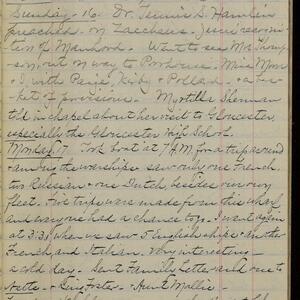 Sunday 16. Dr. Teunis S. Hamlin
preached. on Zacchaeus.
tion of Manhood. Went to see Mrs.
son, out on way to Poorhouse. Miss
& I with Paige, Kirby & Pollard. a
ket of provisions. Myrtilla Sherman
told in chapel about her visit to Gloucester,
especially the Gloucester High School.
Monday 17 Took boat at 7 A.M. for a trip around
among the warships. saw only one French,
two Russian & one Dutch, besides our own
fleet. Five trips were made from this wharf
and everyone had a chance to go. I went again
at 3:30 when we saw 5 English ships & another
French, and Italian. Very interesting
a cold day. Sent Family Letter and
Hatte. & Aunt Mollie.